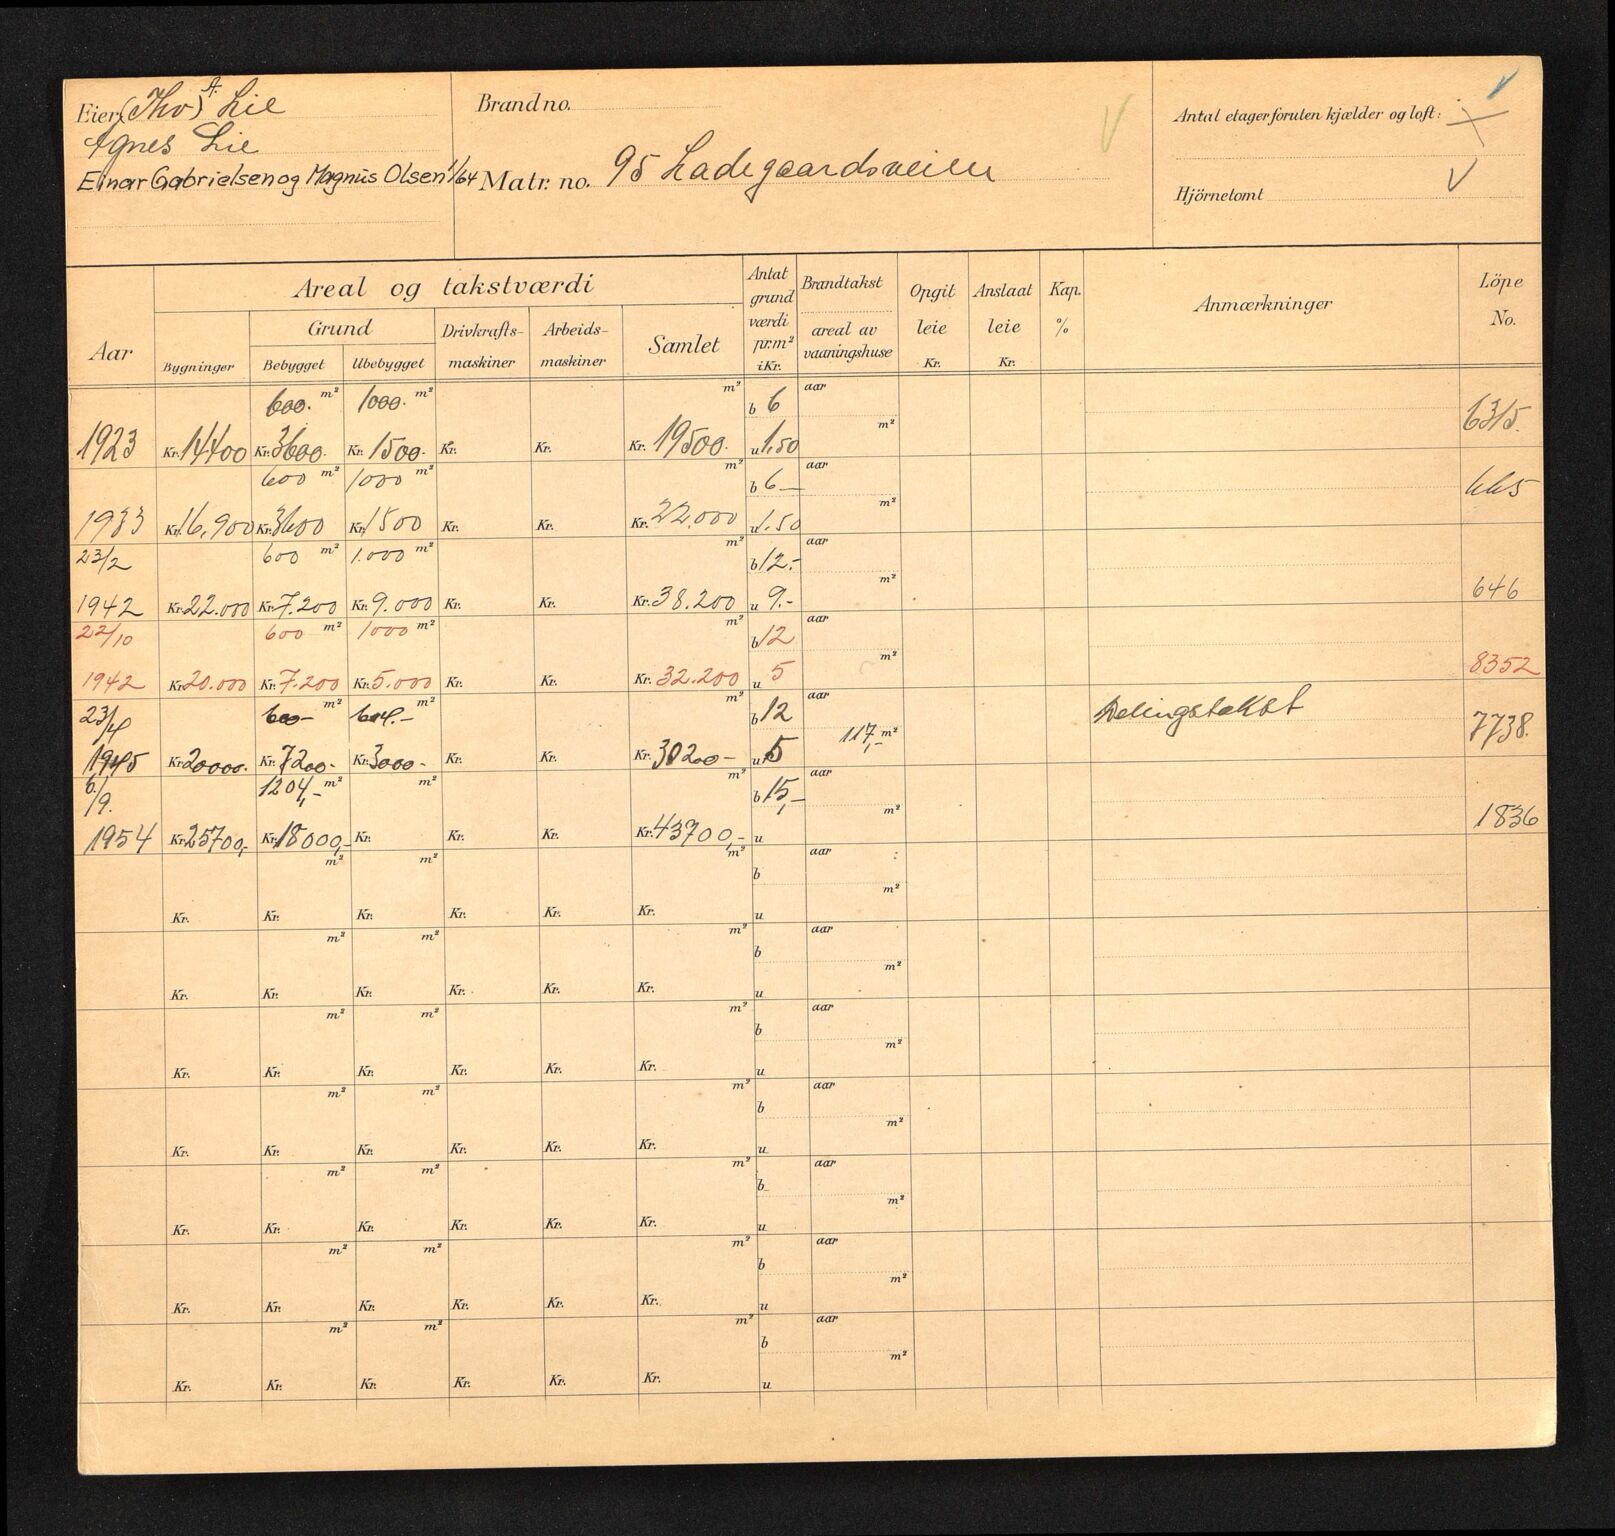 Eier (Thv) A. Lie
Agnes Lie
Einar Gabrielsen og Magnus Olsen 1/64
Brand no.
Matr. no. 95 Ladegaardsveien
Antal etager foruten kjælder og loft:
Hjörnetomt
Aar
Areal og takstværdi
Bygninger
Grund
Bebygget Ubebygget
Drivkraftsmaskiner
Arbeidsmaskiner
Samlet
Antat grundværdi pr. m² i Kr.
Brandtakst
areal av vaaningshuse
Opgit leie Kr.
Anslaat leie Kr.
Kap. %
Anmærkninger
Löpe No.
600. m² 1000. m² m² b 6 aar
m²
1923 Kr. 14400 Kr. 3600. Kr. 1500.- Kr. Kr. Kr. 19500. u 1.50 6315.
600 m² 1000 m² m² b 6 — aar
m²
1933 Kr. 16,900 Kr. 3600 Kr. 1500 Kr. Kr. Kr. 22.000 u 1.50 665
23/2 600 m² 1.000 m² m² b 12.- aar
m²
1942 Kr. 22.000 Kr. 7.200 Kr. 9.000 Kr. Kr. Kr. 38.200 u 9.- 646
22/10 600 m² 1000 m² m² b 12 aar
m²
1942 Kr. 20.000 Kr. 7.200 Kr. 5.000 Kr. Kr. Kr. 32.200 u 5 8352
23/4 600 — m² 604.- m² m² b 12 aar Delingstakst
117,- m²
1945 Kr. 20000. Kr. 7200.- Kr. 3000.- Kr. Kr. Kr. 30200 — u 5 7738.
6/9. 1204,- m² m² m² b 15,- aar
m²
1954 Kr. 25700,- Kr. 18000,- Kr. Kr. Kr. Kr. 43700,- u 1836
m² m² m² b aar
m²
Kr. Kr. Kr. Kr. Kr. Kr. u
m² m² m² b aar
m²
Kr. Kr. Kr. Kr. Kr. Kr. u
m² m² m² b aar
m²
Kr. Kr. Kr. Kr. Kr. Kr. u
m² m² m² b aar
m²
Kr. Kr. Kr. Kr. Kr. Kr. u
m² m² m² b aar
m²
Kr. Kr. Kr. Kr. Kr. Kr. u
m² m² m² b aar
m²
Kr. Kr. Kr. Kr. Kr. Kr. u
m² m² m² b aar
m²
Kr. Kr. Kr. Kr. Kr. Kr. u